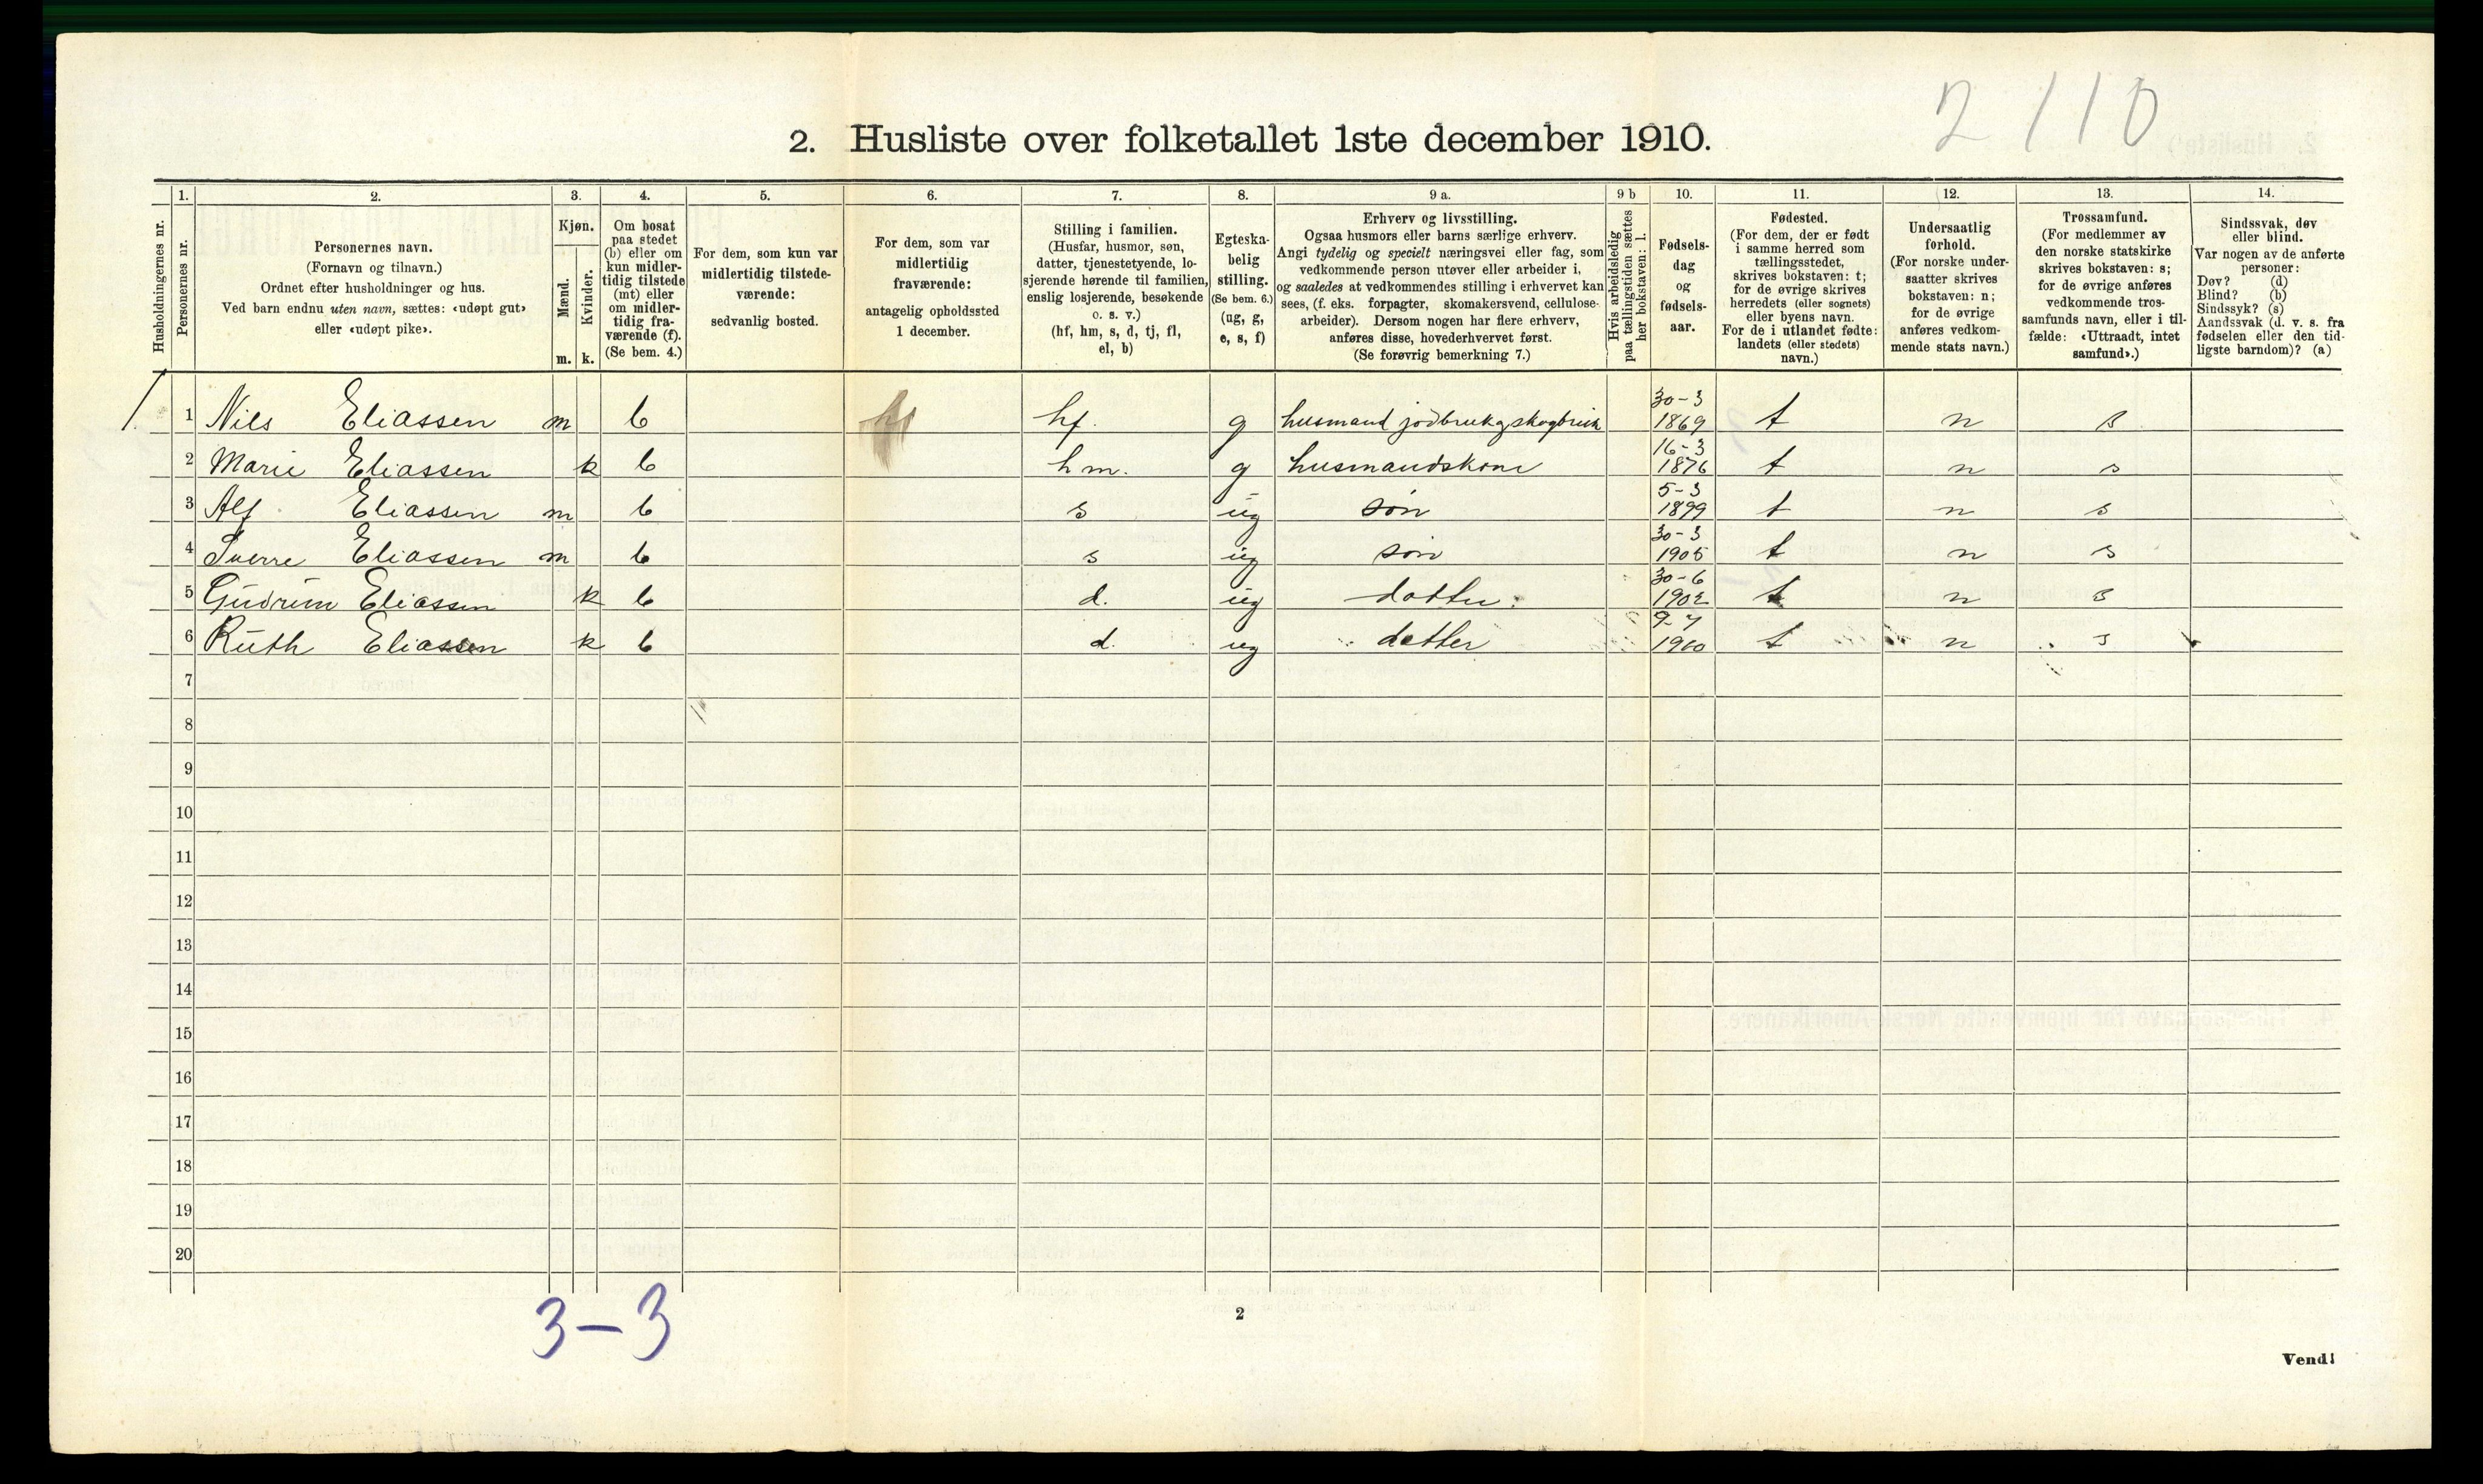 2110
2. Husliste over folketallet 1ste december 1910.
Husholdningernes nr.
1.
Personernes nr.
2.
Personernes navn.
(Fornavn og tilnavn.)
Ordnet efter husholdninger og hus.
Ved barn endnu uten navn, sættes: «udøpt gut»
eller «udøpt pike».
3.
Kjøn.
Mænd.
Kvinder.
m. k.
4.
Om bosat
paa stedet
(b) eller om
kun midler-
tidig tilstede
(mt) eller
om midler-
tidig fra-
værende (f).
(Se bem. 4.)
5.
For dem, som kun var
midlertidig tilstede-
værende:
sedvanlig bosted.
6.
For dem, som var
midlertidig
fraværende:
antagelig opholdssted
1 december.
7.
Stilling i familien.
(Husfar, husmor, søn,
datter, tjenestetyende, lo-
sjerende hørende til familien,
enslig losjerende, besøkende
o. s. v.)
(hf, hm, s, d, tj, fl,
el, b)
8.
Egteska-
belig
stilling.
(Se bem. 6.)
(ug, g,
e, s, f)
9 a.
Erhverv og livsstilling.
Ogsaa husmors eller barns særlige erhverv.
Angi tydelig og specielt næringsvei eller fag, som
vedkommende person utøver eller arbeider i,
og saaledes at vedkommendes stilling i erhvervet kan
sees, (f. eks. forpagter, skomakersvend, cellulose-
arbeider). Dersom nogen har flere erhverv,
anføres disse, hovederhvervet først.
(Se forøvrig bemerkning 7.)
9 b
Hvis arbeidsledig
paa tællingstiden sættes
her bokstaven: l.
10.
Fødsels-
dag
og
fødsels-
aar.
11.
Fødested.
(For dem, der er født
i samme herred som
tællingsstedet,
skrives bokstaven: t;
for de øvrige skrives
herredets (eller sognets)
eller byens navn.
For de i utlandet fødte:
landets (eller stedets)
navn.)
12.
Undersaatlig
forhold.
(For norske under-
saatter skrives
bokstaven: n;
for de øvrige
anføres vedkom-
mende stats navn.)
13.
Trossamfund.
(For medlemmer av
den norske statskirke
skrives bokstaven: s;
for de øvrige anføres
vedkommende tros-
samfunds navn, eller i til-
fælde: «Uttraadt, intet
samfund».)
14.
Sindssvak, døv
eller blind.
Var nogen av de anførte
personer:
Døv? (d)
Blind? (b)
Sindssyk? (s)
Aandssvak (d. v. s. fra
fødselen eller den tid-
ligste barndom)? (a)
1 Nils Eliassen m b hf. g husmand jodbruk og skogbruk 30-3 1869 t n s
2 Marie Eliassen k b hm. g husmandskone 16-3 1876 t n s
3 Alf Eliassen m b s ug søn 5-3 1899 t n s
4 Sverre Eliassen m b s ug søn 30-3 1905 t n s
5 Gudrun Eliassen k b d. ug datter. 30-6 1902 t n s
6 Ruth Eliassen k b d. ug datter 1900 t n s
7
8
9
10
11
12
13
14
15
16
17
18
19
20
3-3
2
Vend!